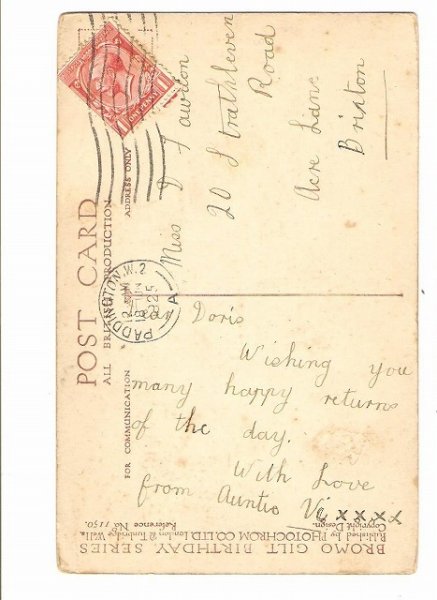 POST CARD
ALL BRITISH PRODUCTION
FOR COMMUNICATION
ADDRESS ONLY
ONE PENNY
PADDINGTON.W.2
18 JUN
1925
A
Miss D Fawdon
20 Strathleven
Road
Acre Lane
Brixton
Dear Doris
Wishing you
many happy returns
of the day.
With Love
from Auntie Vi xxxx
BROMO GILT BIRTHDAY SERIES
Published by PHOTOCHROM CO. LTD. London & Tunbridge Wells
Copyright Design. Reference No. 1150.